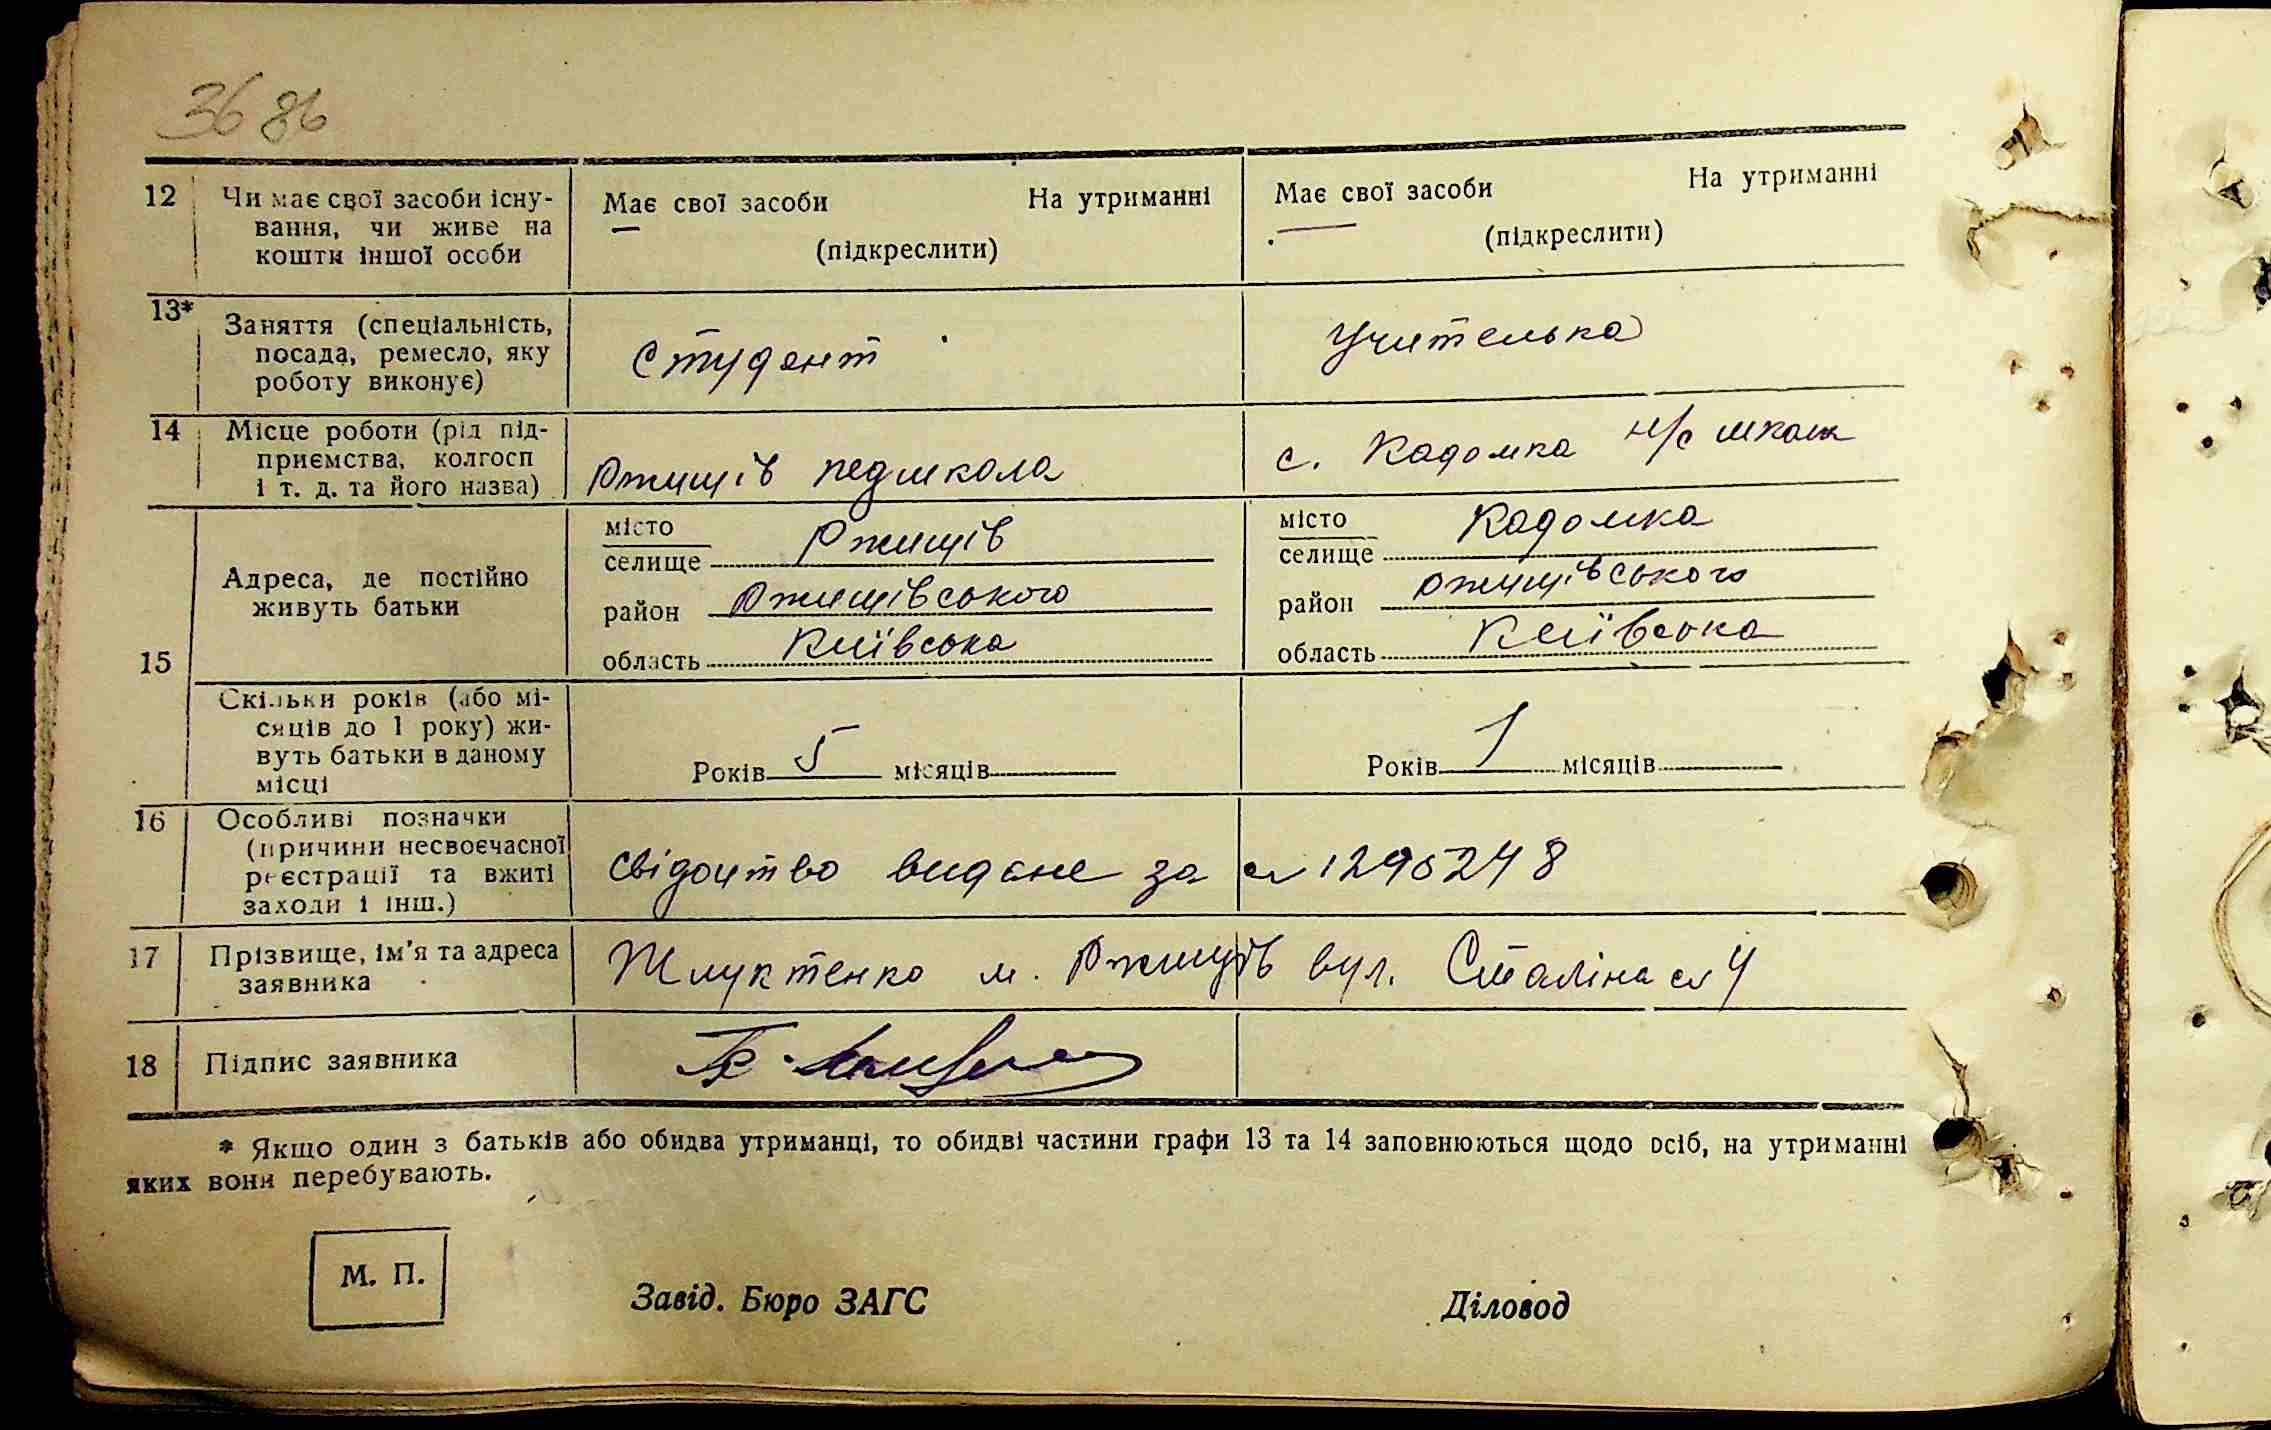 3686
12 Чи має свої засоби існу- Має свої засоби На утриманні Має свої засоби На утриманні
вання, чи живе на (підкреслити) (підкреслити)
кошти іншої особи
13* Заняття (спеціальність, студент учителька
посада, ремесло, яку
роботу виконує)
14 Місце роботи (рід під- Ржищів педшкола с. Кадомка н/с школа
приємства, колгосп
і т. д. та його назва)
15 Адреса, де постійно живуть батьки
місто селище Ржищів місто селище Кадомка
район Ржищівського район Ржищівського
область Київська область Київська
Скільки років (або мі-
сяців до 1 року) жи-
вуть батьки в даному
місці
Років 5 місяців Років 1 місяців
16 Особливі позначки свідоцтво видане за № 1295248
(причини несвоєчасної
реєстрації та вжиті
заходи і інш.)
17 Прізвище, ім'я та адреса Жлуктенко м. Ржищів вул. Сталіна № 4
заявника
18 Підпис заявника
* Якщо один з батьків або обидва утриманці, то обидві частини графи 13 та 14 заповнюються щодо осіб, на утриманні
яких вони перебувають.
М. П.
Завід. Бюро ЗАГС Діловод